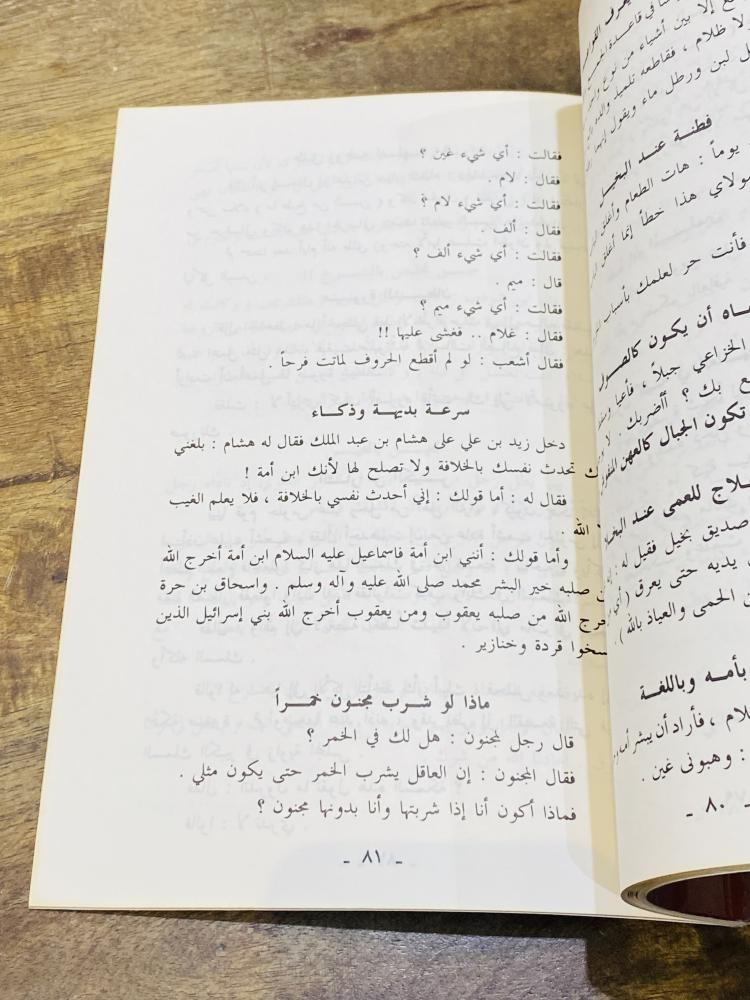 يعرف
في قاعدة
إلا بين أشياء من نوع
ولا ظلام ، فقاطعه تلميذ
لبن ورطل ماء ويقول
فطنة عند البخيل
يوماً : هات الطعام وأغلق
مولاي هذا خطأ إنما أغلق
فأنت حر لعلمك بأسباب
أن يكون كالصوف
الخزاعي جبلاً ، فأعيا
بك ؟ أأضربك
تكون الجبال كالعهن المنفوش
للعمى عند البخلاء
صديق بخيل فقيل له :
يديه حتى يعرق
الحمى والعياذ بالله ) .
بأمه وباللغة
، فأراد أن يبشر أمه
: وهبوني غين .
- ٨٠ -
فقالت : أي شيء غين ؟
فقال : لام .
فقالت : أي شيء لام ؟
فقال : ألف .
فقالت : أي شيء ألف ؟
قال : ميم .
فقالت : أي شيء ميم ؟
فقال : غلام . فغشى عليها !!
فقال أشعب : لو لم أقطع الحروف لماتت فرحاً .
سرعة بديهة وذكاء
دخل زيد بن علي على هشام بن عبد الملك فقال له هشام : بلغني
تحدث نفسك بالخلافة ولا تصلح لها لأنك ابن أمة !
فقال له : أما قولك : إني أحدث نفسي بالخلافة ، فلا يعلم الغيب
الله .
وأما قولك : أنني ابن أمة فاسماعيل عليه السلام ابن أمة أخرج الله
صلبه خير البشر محمد صلى الله عليه وآله وسلم . واسحاق بن حرة
الله من صلبه يعقوب ومن يعقوب أخرج الله بني إسرائيل الذين
قردة وخنازير .
ماذا لو شرب مجنون خمراً
قال رجل لمجنون : هل لك في الخمر ؟
فقال المجنون : إن العاقل يشرب الخمر حتى يكون مثلي .
فماذا أكون أنا إذا شربتها وأنا بدونها مجنون ؟
- ٨١ -